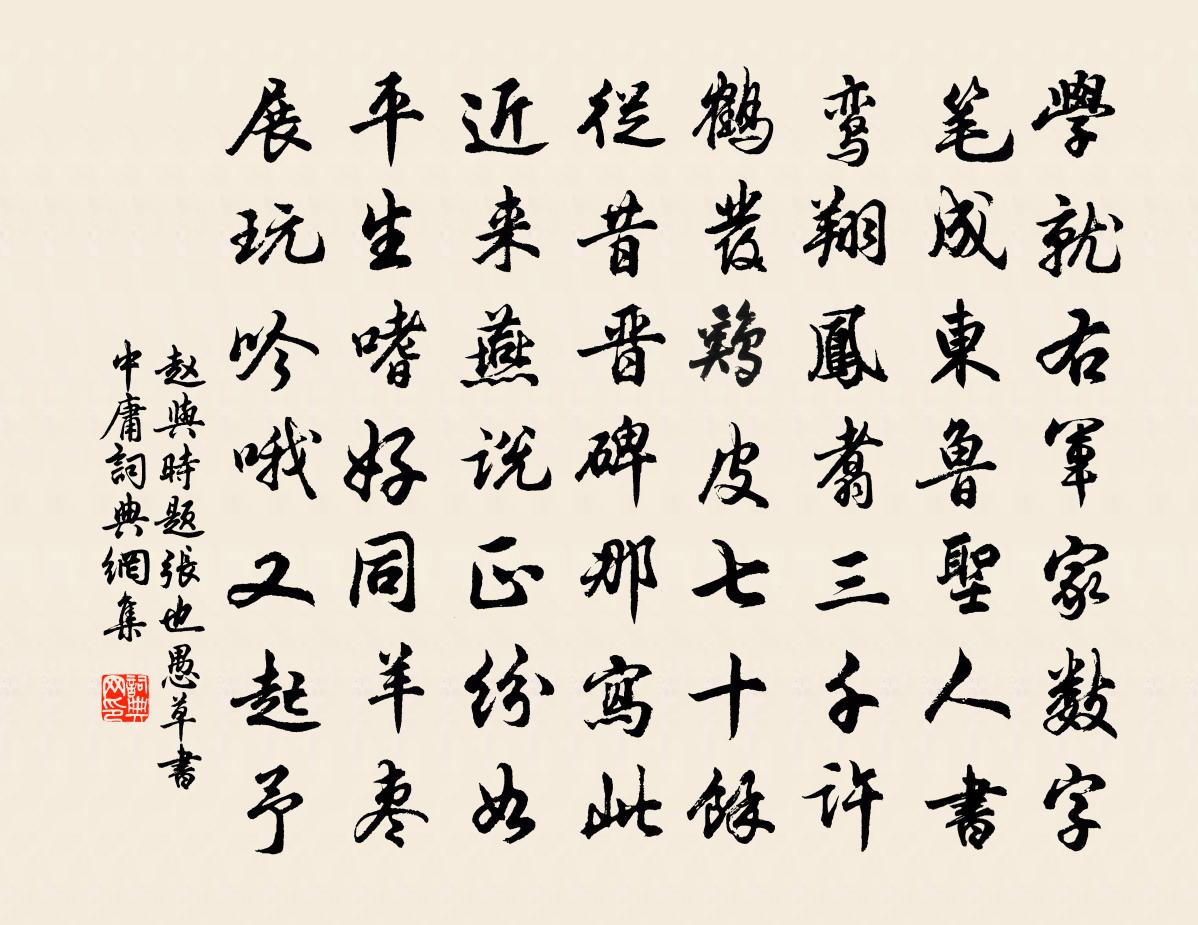 學就右軍家數字
笔成東魯聖人書
鸾翔鳳翥三千許
鶴發鷄皮七十餘
從昔晋碑那寫此
近来燕说正纷如
平生嗜好同羊枣
展玩吟哦又起予
赵與時题張也愚草書
中庸詞典網集
詞典网印